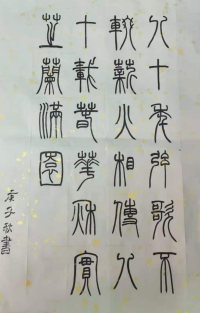 八十年弦歌不
輟薪火相傳八
十載春華秋實
芷蘭滿園
庚子秋書